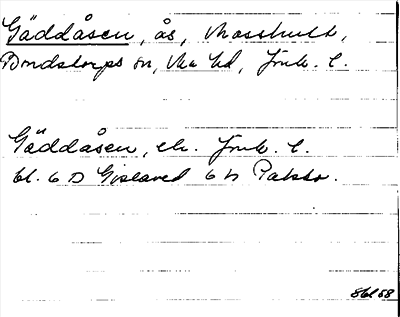 Gäddåsen, ås, Mosshult,
Bondstorps sn, Mo hd, Jönk. l.
Gäddåsen, ek. Jönk. l.
bl. 6 D Gislaved 6 h